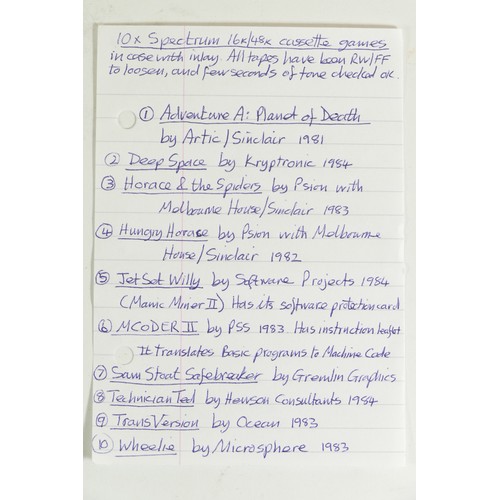 10x Spectrum 16k/48k cassette games
in case with inlay. All tapes have been RW/FF
to loosen, and few seconds of tone checked ok.
① Adventure A: Planet of Death
by Artic/Sinclair 1981
② Deep Space by Kryptronic 1984
③ Horace & the Spiders by Psion with
Melbourne House/Sinclair 1983
④ Hungry Horace by Psion with Melbourne
House/Sinclair 1982
⑤ Jet Set Willy by Software Projects 1984
(Manic Miner II) Has its software protection card
⑥ MCODER II by PSS 1983 Has instruction leaflet
It translates Basic programs to Machine Code
⑦ Sam Stoat Safebreaker by Gremlin Graphics
⑧ Technician Ted by Hewson Consultants 1984
⑨ TransVersion by Ocean 1983
⑩ Wheelie by Microsphere 1983